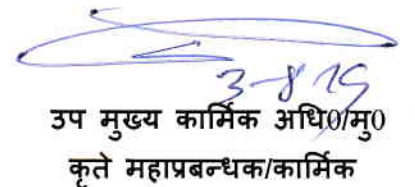 3-8-25
उप मुख्य कार्मिक अधि0/मु0
कृते महाप्रबन्धक/कार्मिक